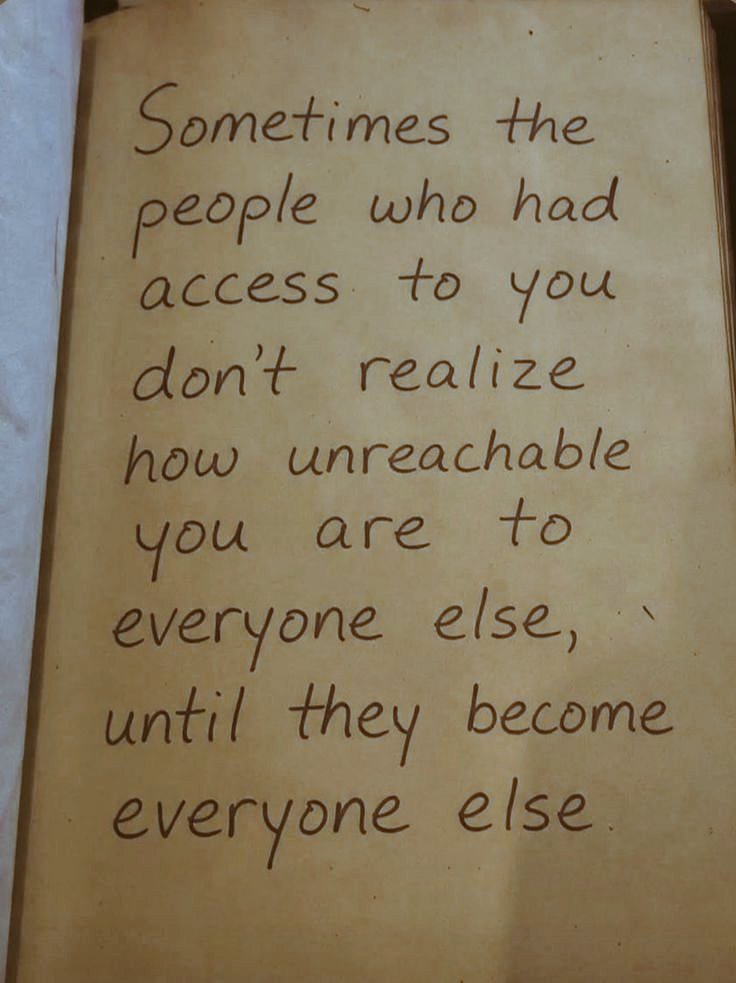 Sometimes the
people who had
access to you
don't realize
how unreachable
you are to
everyone else,
until they become
everyone else.